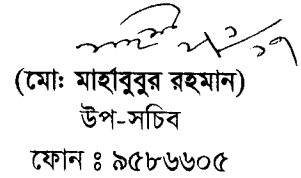 (মোঃ মাহাবুবুর রহমান)
উপ-সচিব
ফোন ঃ ৯৫৮৬৬০৫